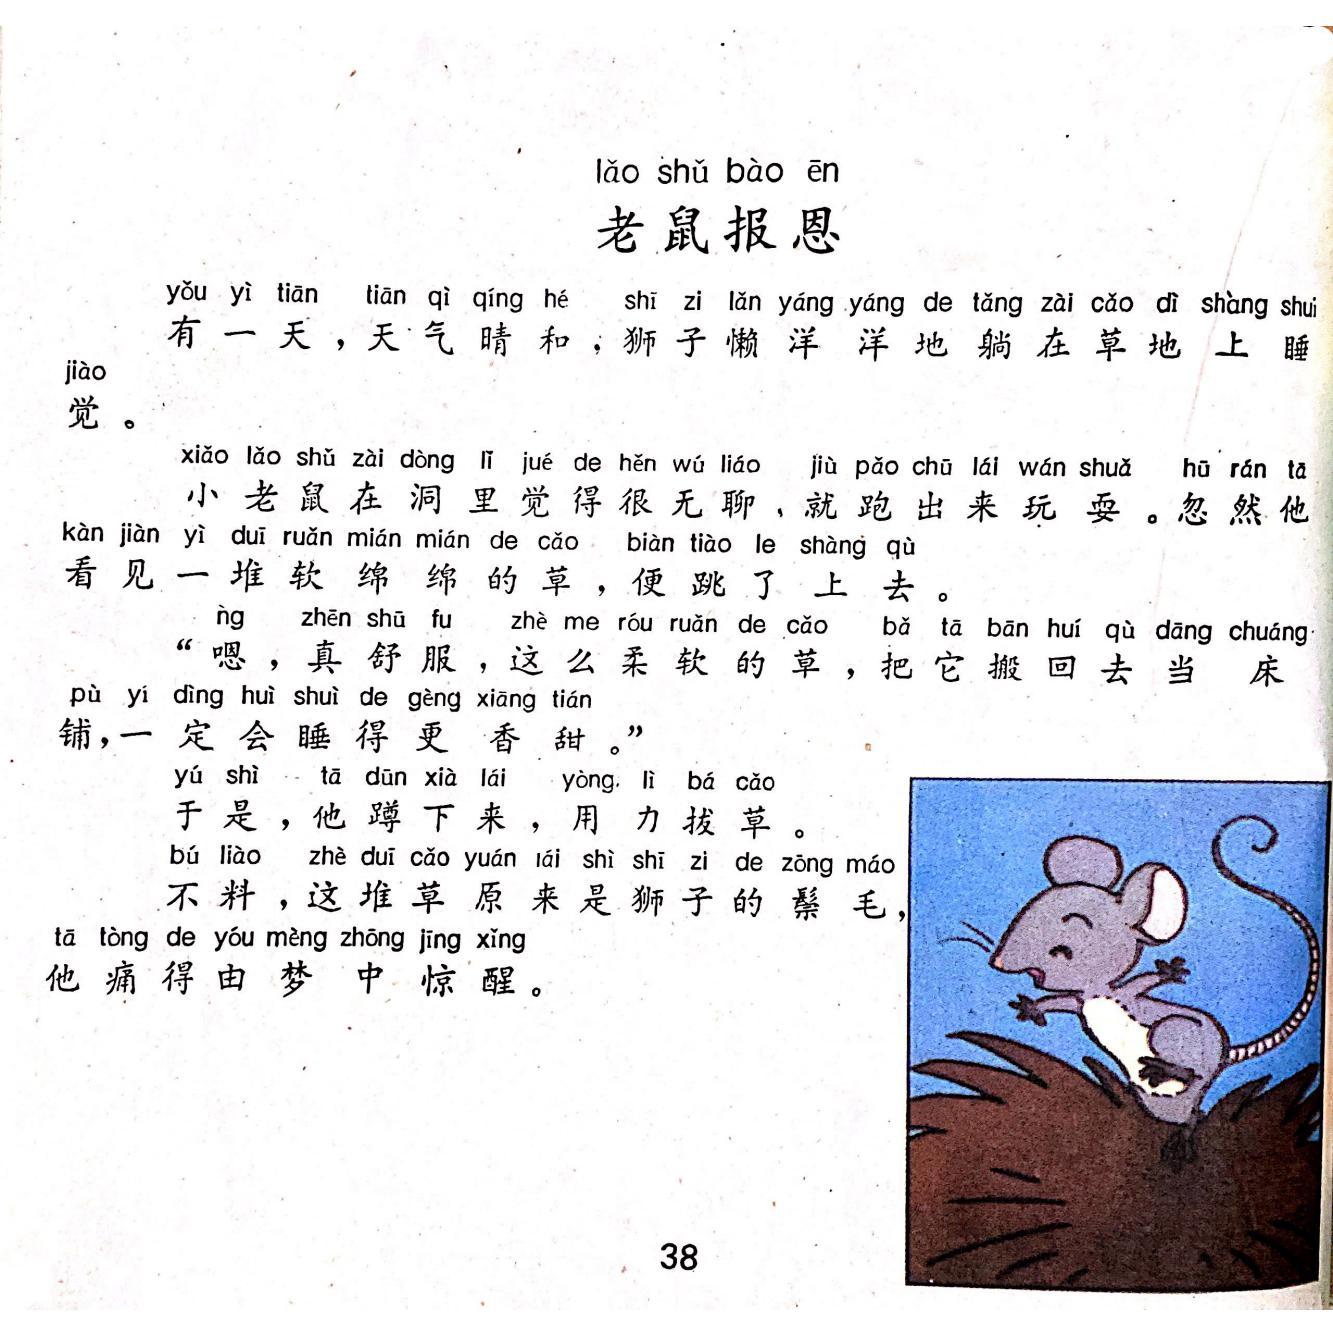 lǎo shǔ bào ēn
老鼠报恩
yǒu yì tiān tiān qì qíng hé shī zi lǎn yáng yáng de tǎng zài cǎo dì shàng shui
有一天，天气晴和，狮子懒洋洋地躺在草地上睡
jiào
觉。
xiǎo lǎo shǔ zài dòng lǐ jué de hěn wú liáo jiù pǎo chū lái wán shuǎ hū rán tā
小老鼠在洞里觉得很无聊，就跑出来玩耍。忽然他
kàn jiàn yì duī ruǎn mián mián de cǎo biàn tiào le shàng qù
看见一堆软绵绵的草，便跳了上去。
ǹg zhēn shū fu zhè me róu ruǎn de cǎo bǎ tā bān huí qù dāng chuáng
“嗯，真舒服，这么柔软的草，把它搬回去当床
pù yí dìng huì shuì de gèng xiāng tián
铺，一定会睡得更香甜。”
yú shì tā dūn xià lái yòng lì bá cǎo
于是，他蹲下来，用力拔草。
bú liào zhè duī cǎo yuán lái shì shī zi de zōng máo
不料，这堆草原来是狮子的鬃毛，
tā tòng de yóu mèng zhōng jīng xǐng
他痛得由梦中惊醒。
38